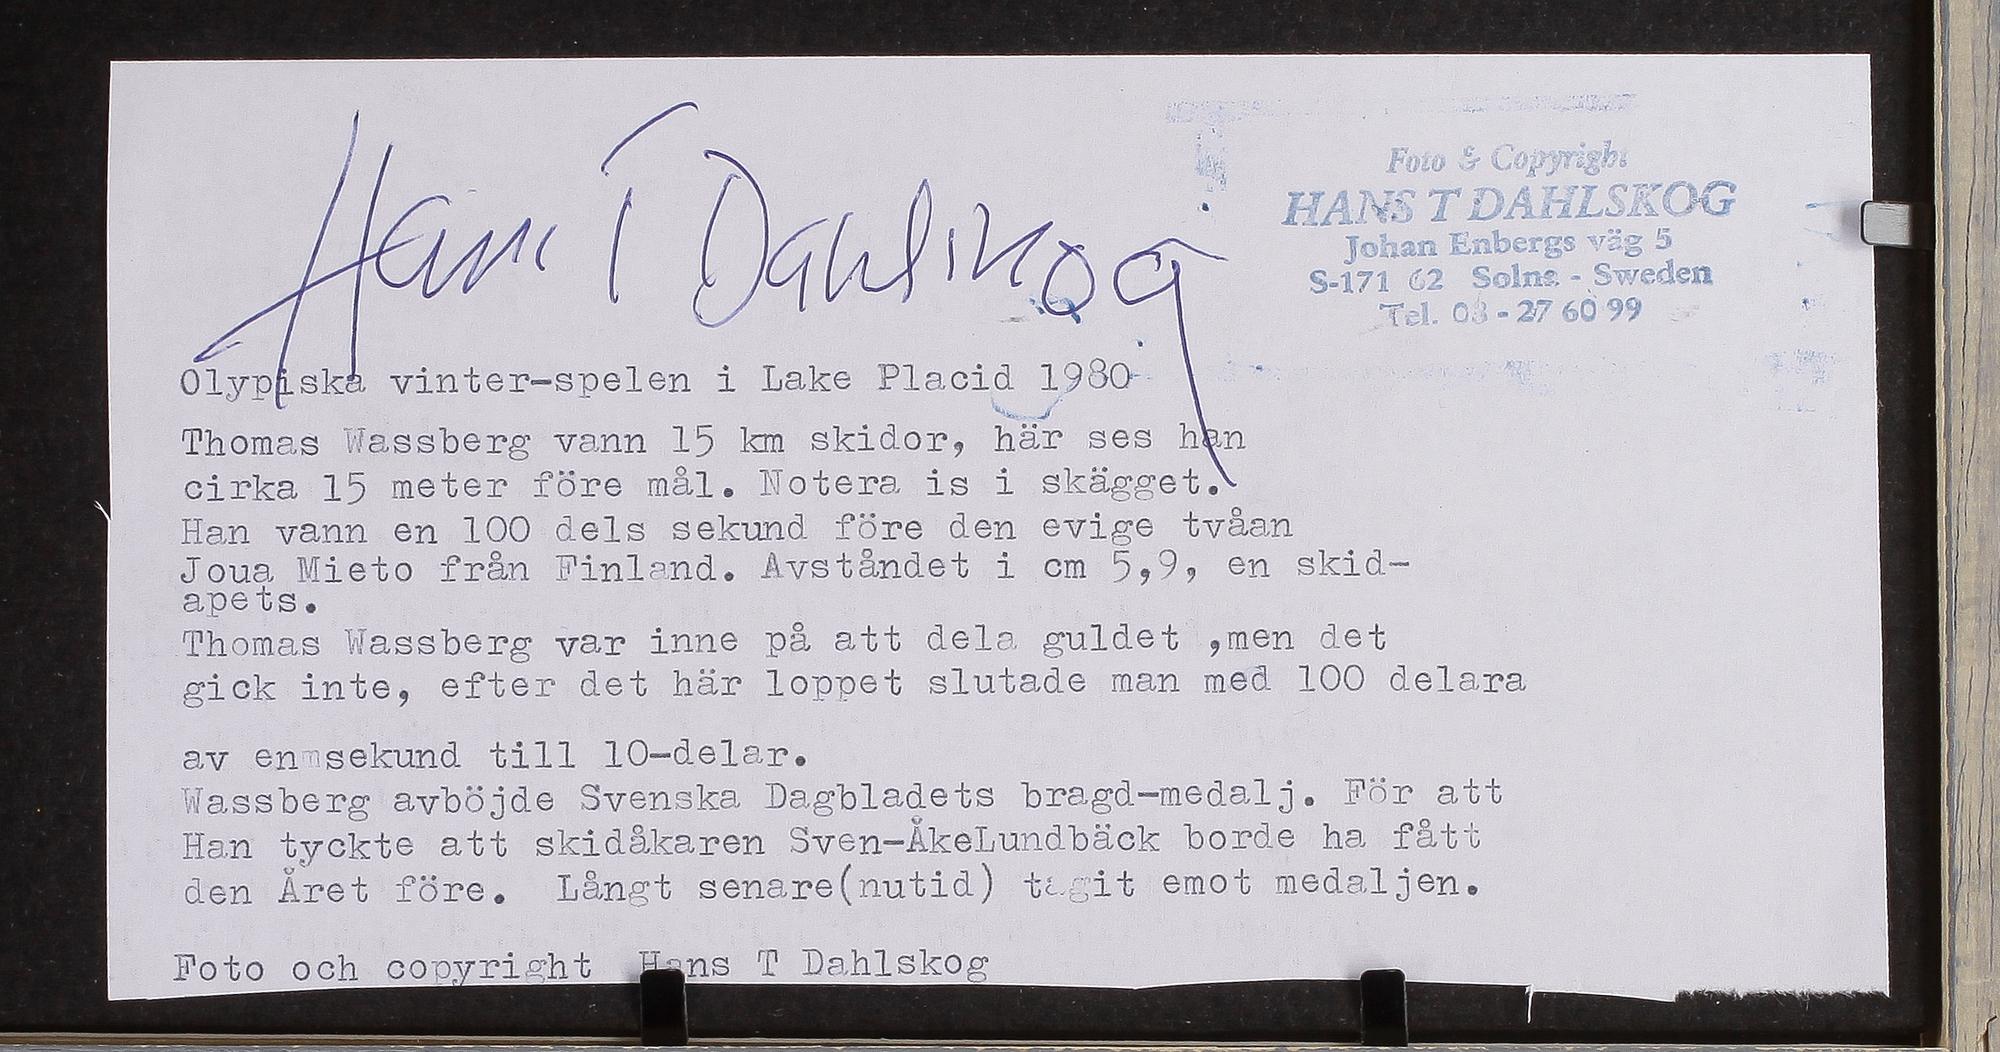 Hans T Dahlskog
Foto & Copyright
HANS T DAHLSKOG
Johan Enbergs väg 5
S-171 62 Solna - Sweden
Tel. 08 - 27 60 99
Olypiska vinter-spelen i Lake Placid 1980
Thomas Wassberg vann 15 km skidor, här ses han
cirka 15 meter före mål. Notera is i skägget.
Han vann en 100 dels sekund före den evige tvåan
Joua Mieto från Finland. Avståndet i cm 5,9, en skid-
apets.
Thomas Wassberg var inne på att dela guldet ,men det
gick inte, efter det här loppet slutade man med 100 delara
av en sekund till 10-delar.
Wassberg avböjde Svenska Dagbladets bragd-medalj. För att
Han tyckte att skidåkaren Sven-ÅkeLundbäck borde ha fått
den Året före. Långt senare(nutid) tagit emot medaljen.
Foto och copyright Hans T Dahlskog